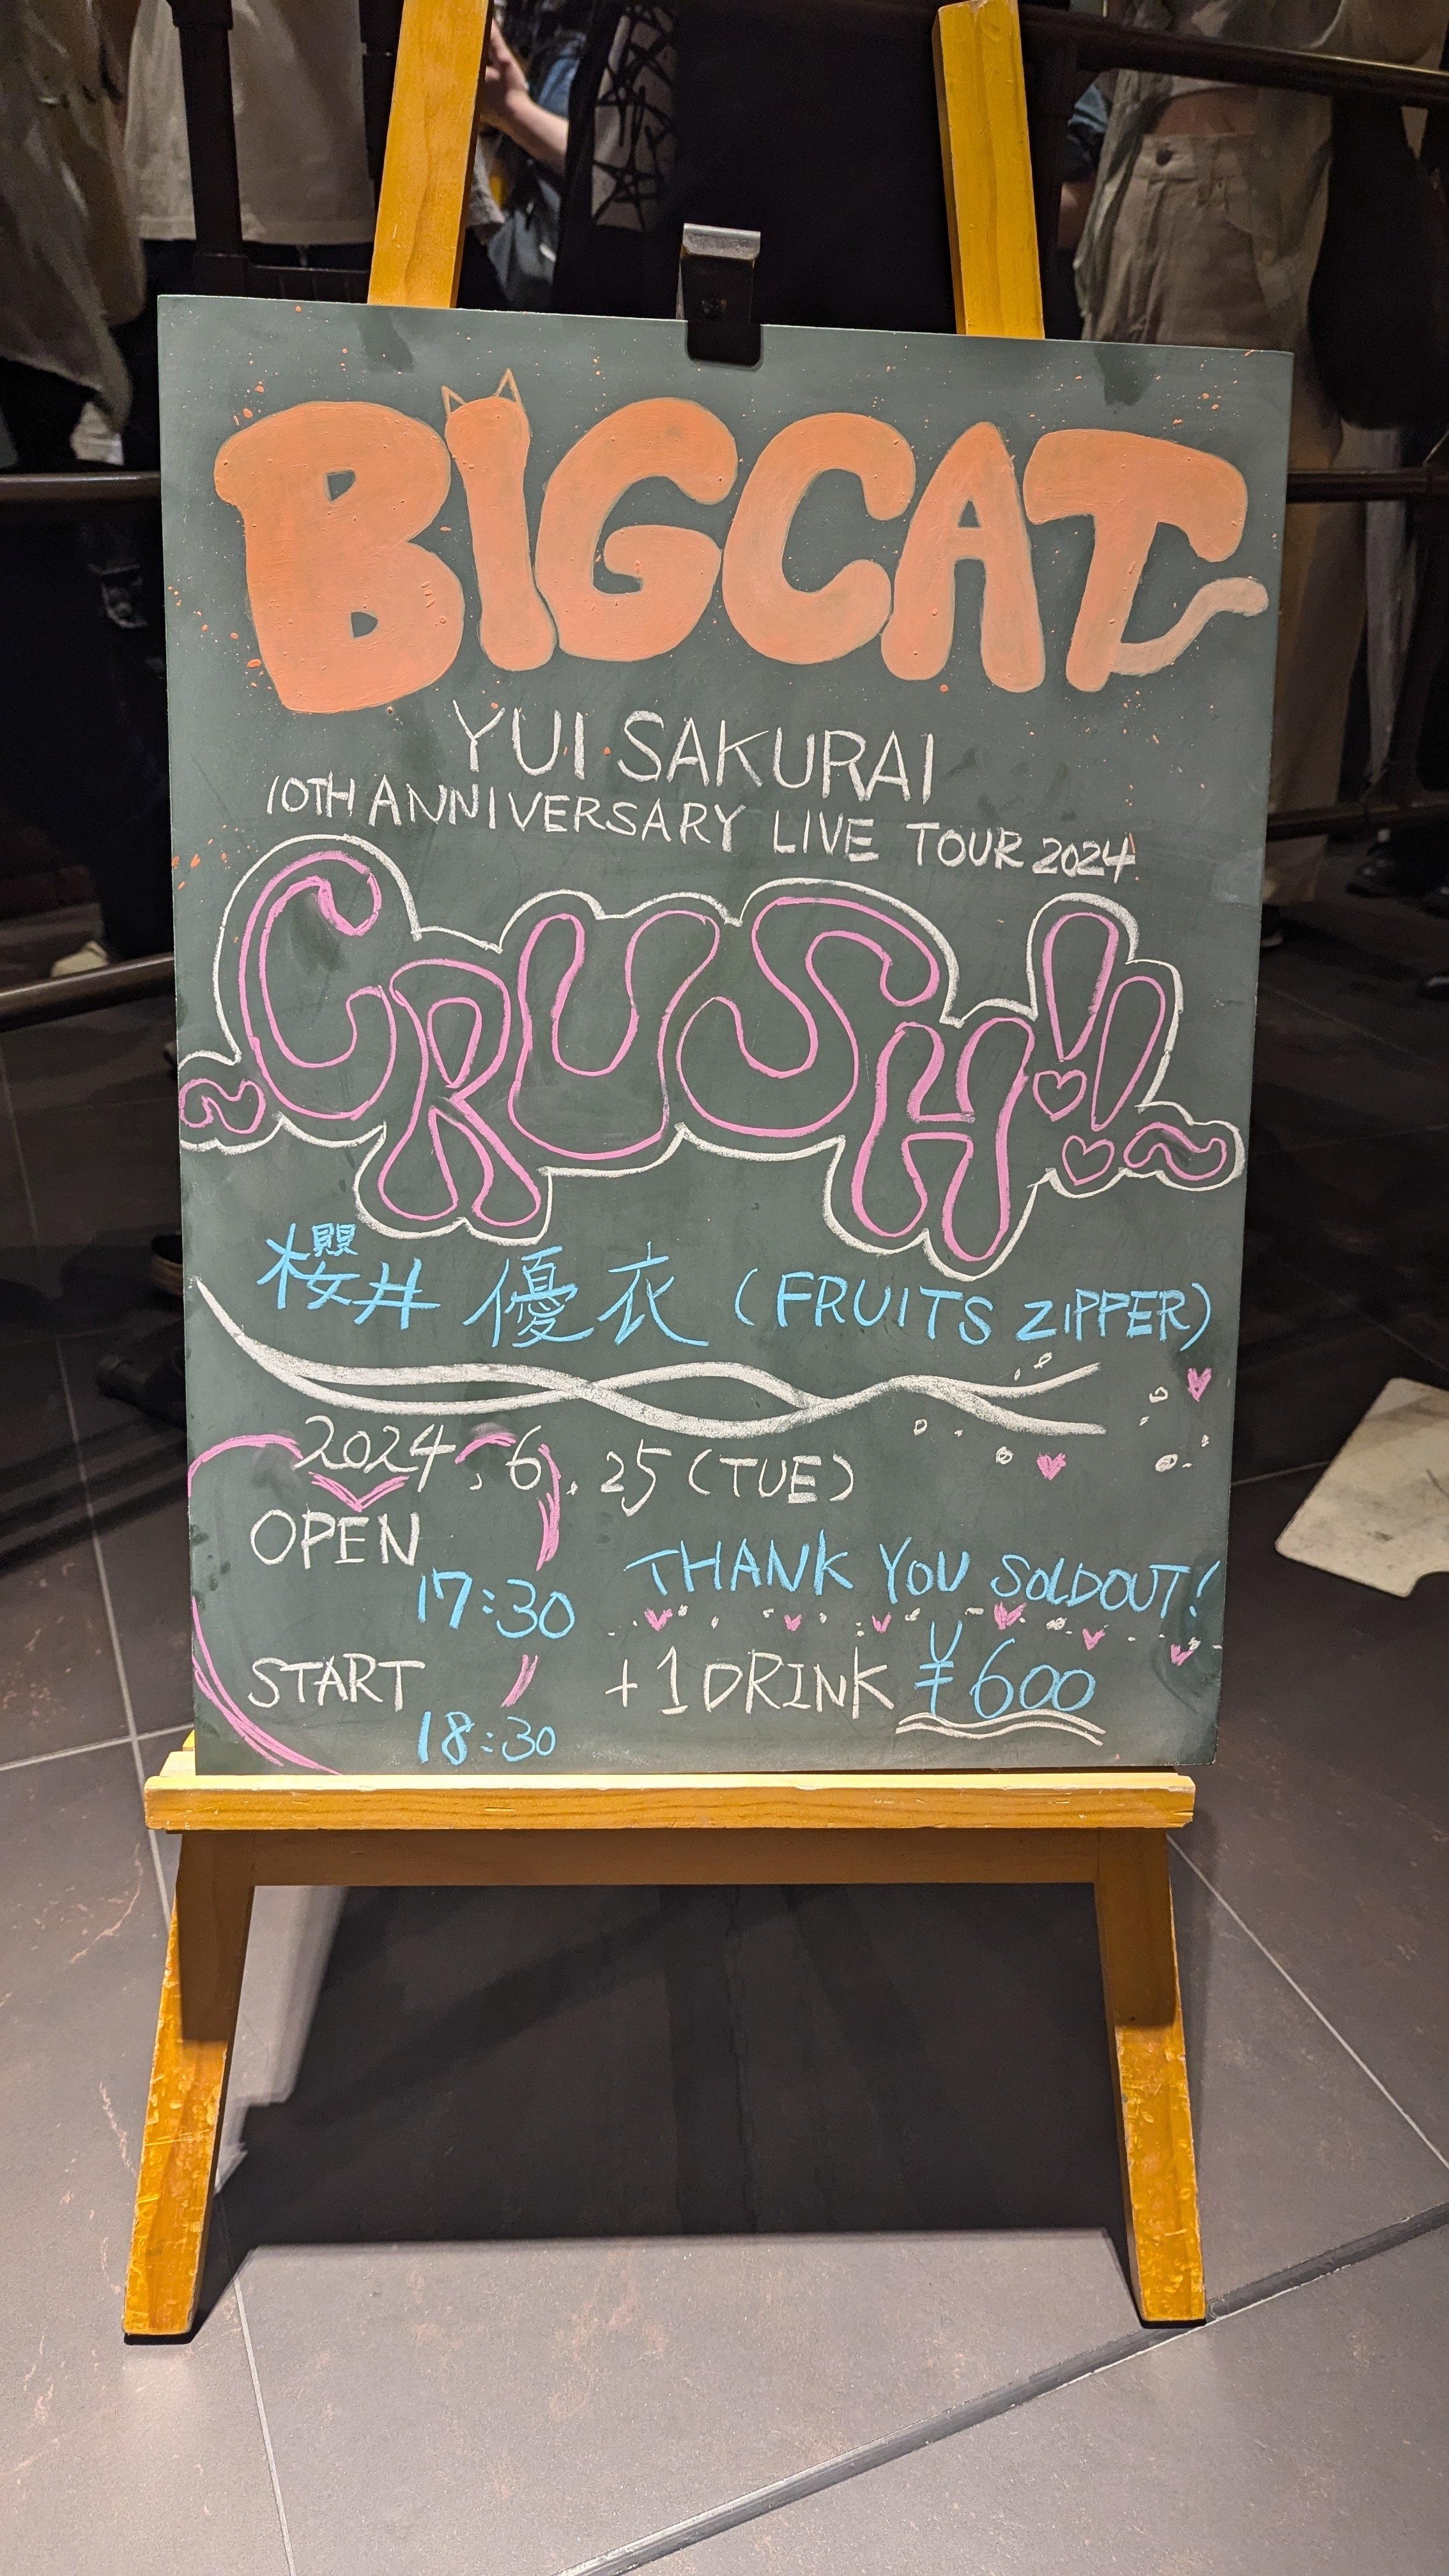 BIGCAT
YUI SAKURAI
10TH ANNIVERSARY LIVE TOUR 2024
~CRUSH!!~
櫻井 優衣 (FRUITS ZIPPER)
2024.6.25 (TUE)
OPEN
17:30
THANK YOU SOLDOUT!
START
18:30
+1DRINK ¥600